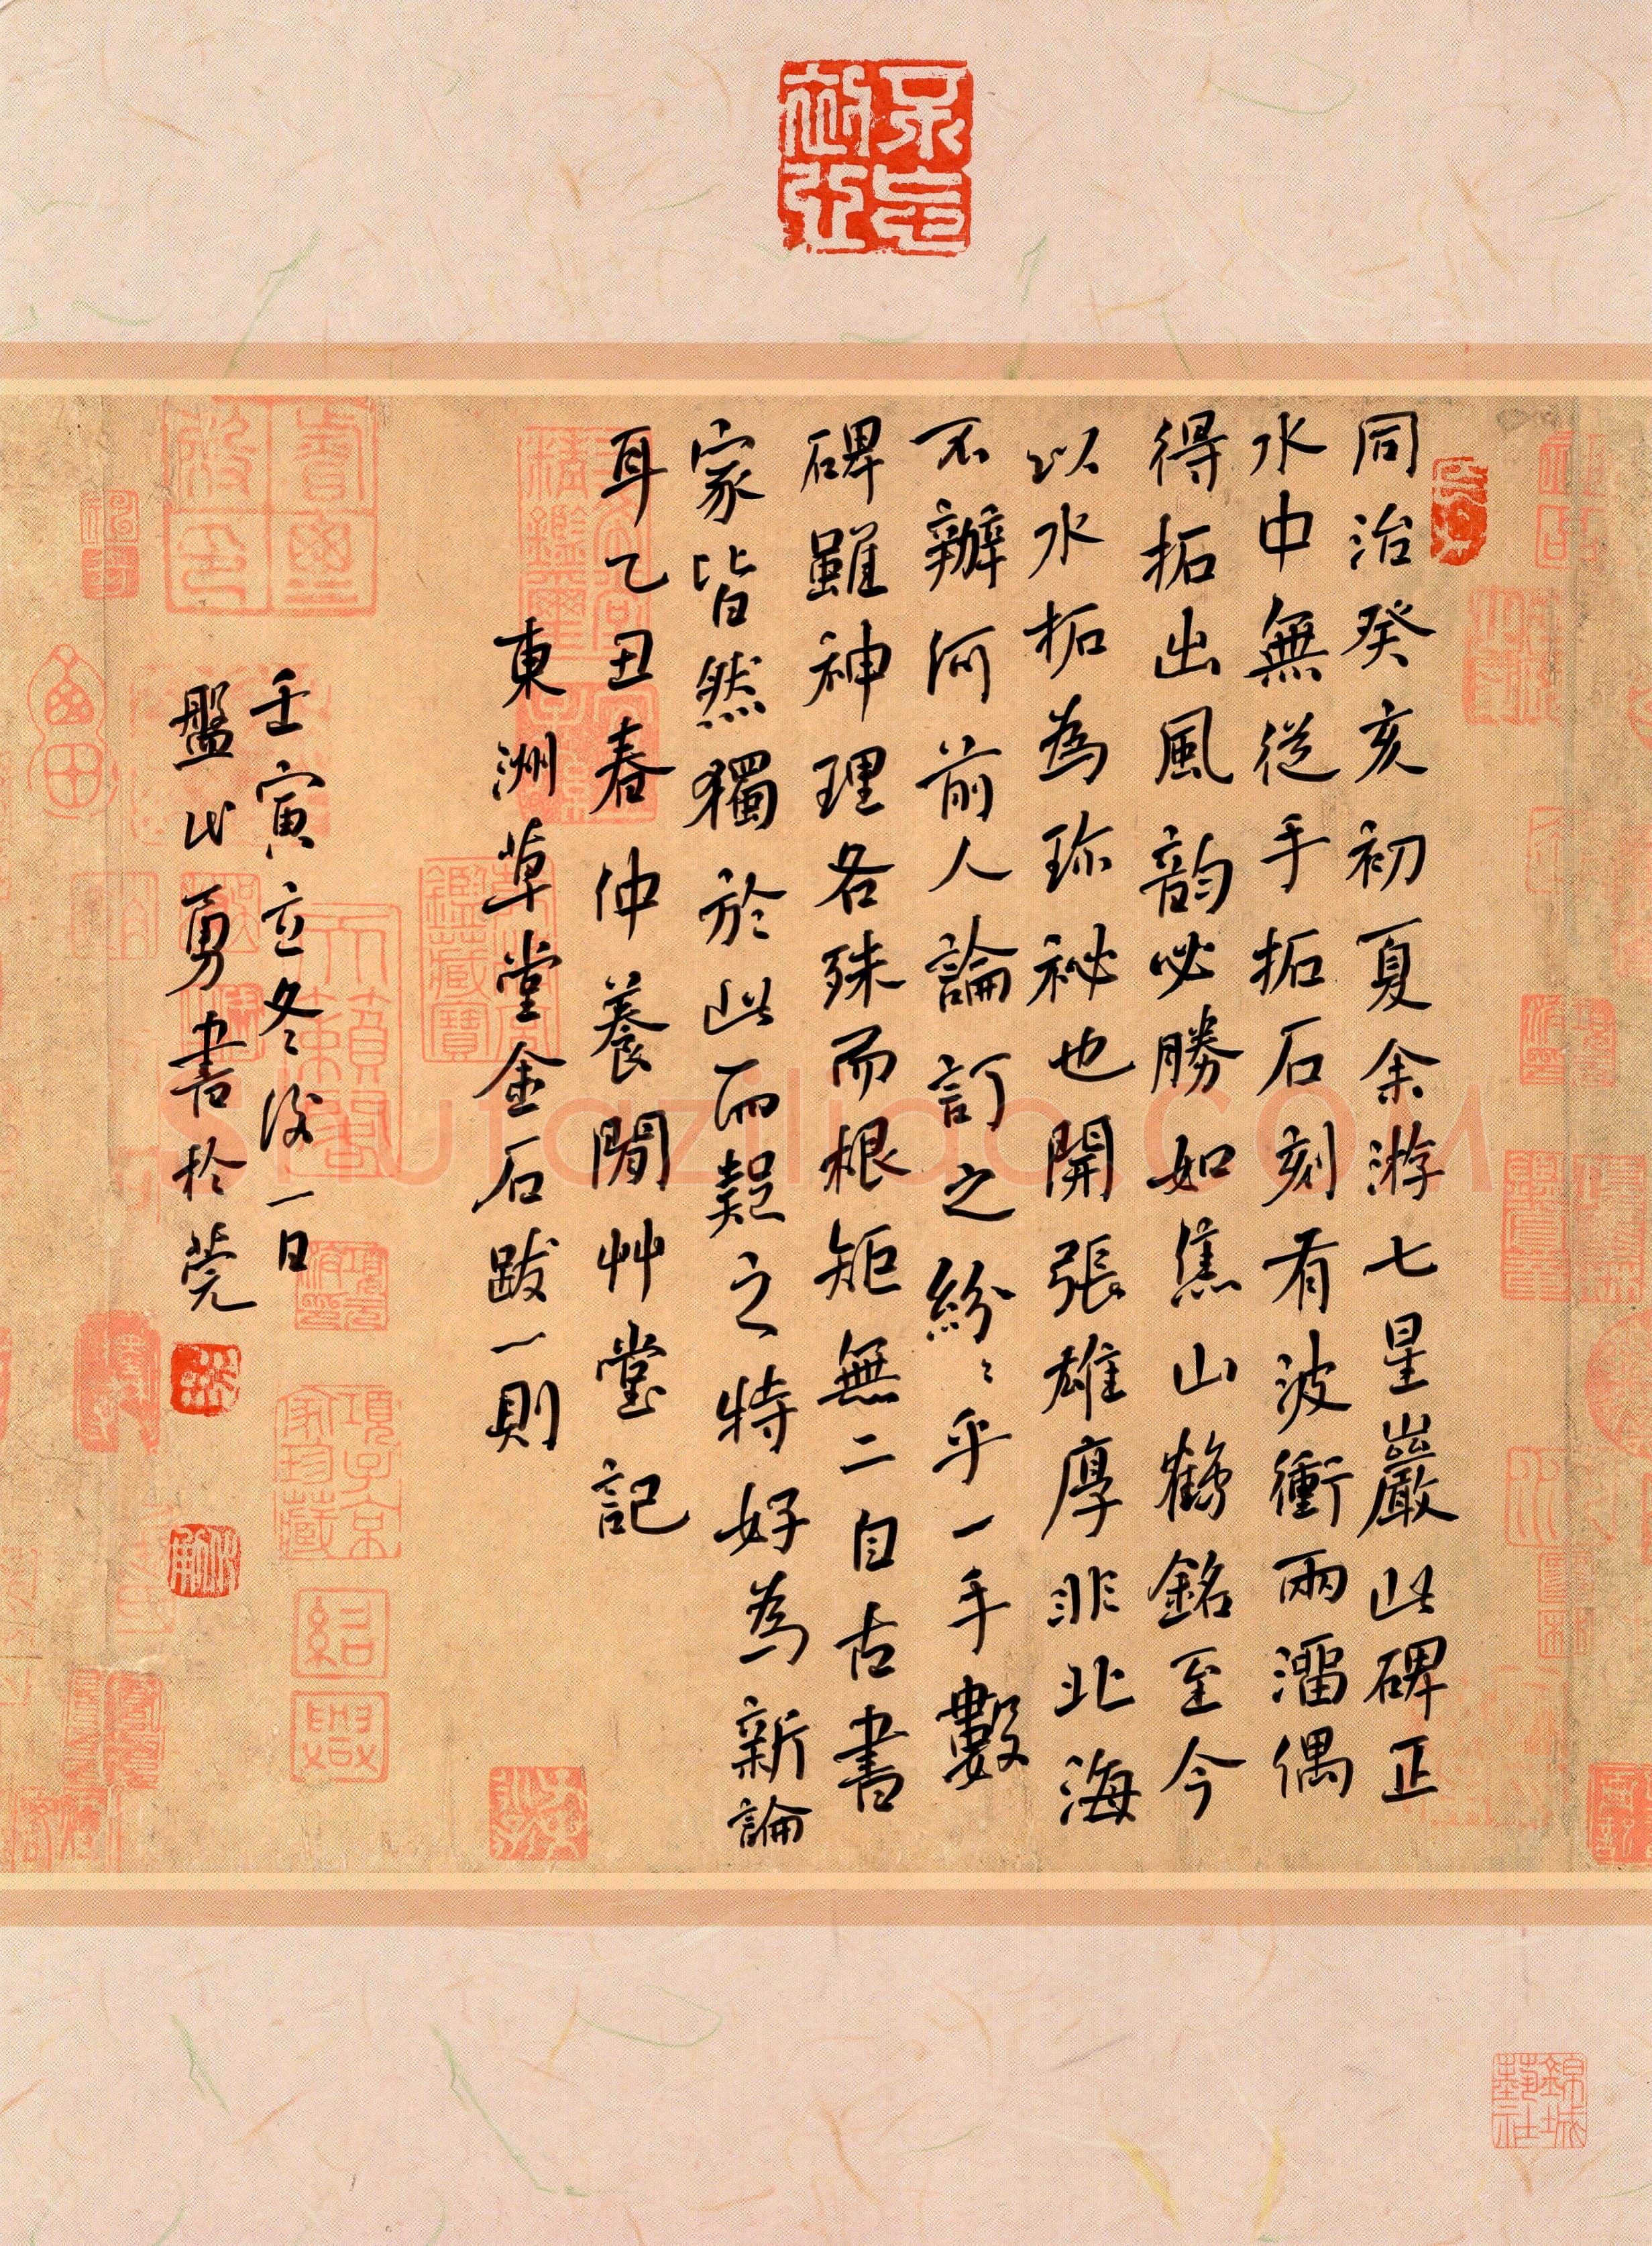 同治癸亥初夏余游七星巖此碑正
水中無從手拓石刻有波衝兩溜偶
得拓出風韵必勝如焦山鶴銘至今
以水拓為珎祕也開張雄厚非北海
不辦何前人論訂之紛〻乎一手數
碑雖神理各殊而根矩無二自古書
家皆然獨於此而疑之特好為新論
耳乙丑春仲養閒艸堂記
東洲草堂金石跋一則
壬寅立冬後一日
盤氏勇書於莞
錦城藝社
Shufaziliao.COM